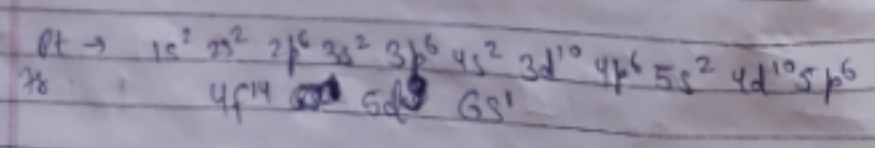 Pt → 1s² 2s² 2p⁶ 3s² 3p⁶ 4s² 3d¹⁰ 4p⁶ 5s² 4d¹⁰ 5p⁶
78 4f¹⁴ 5d⁹ 6s¹